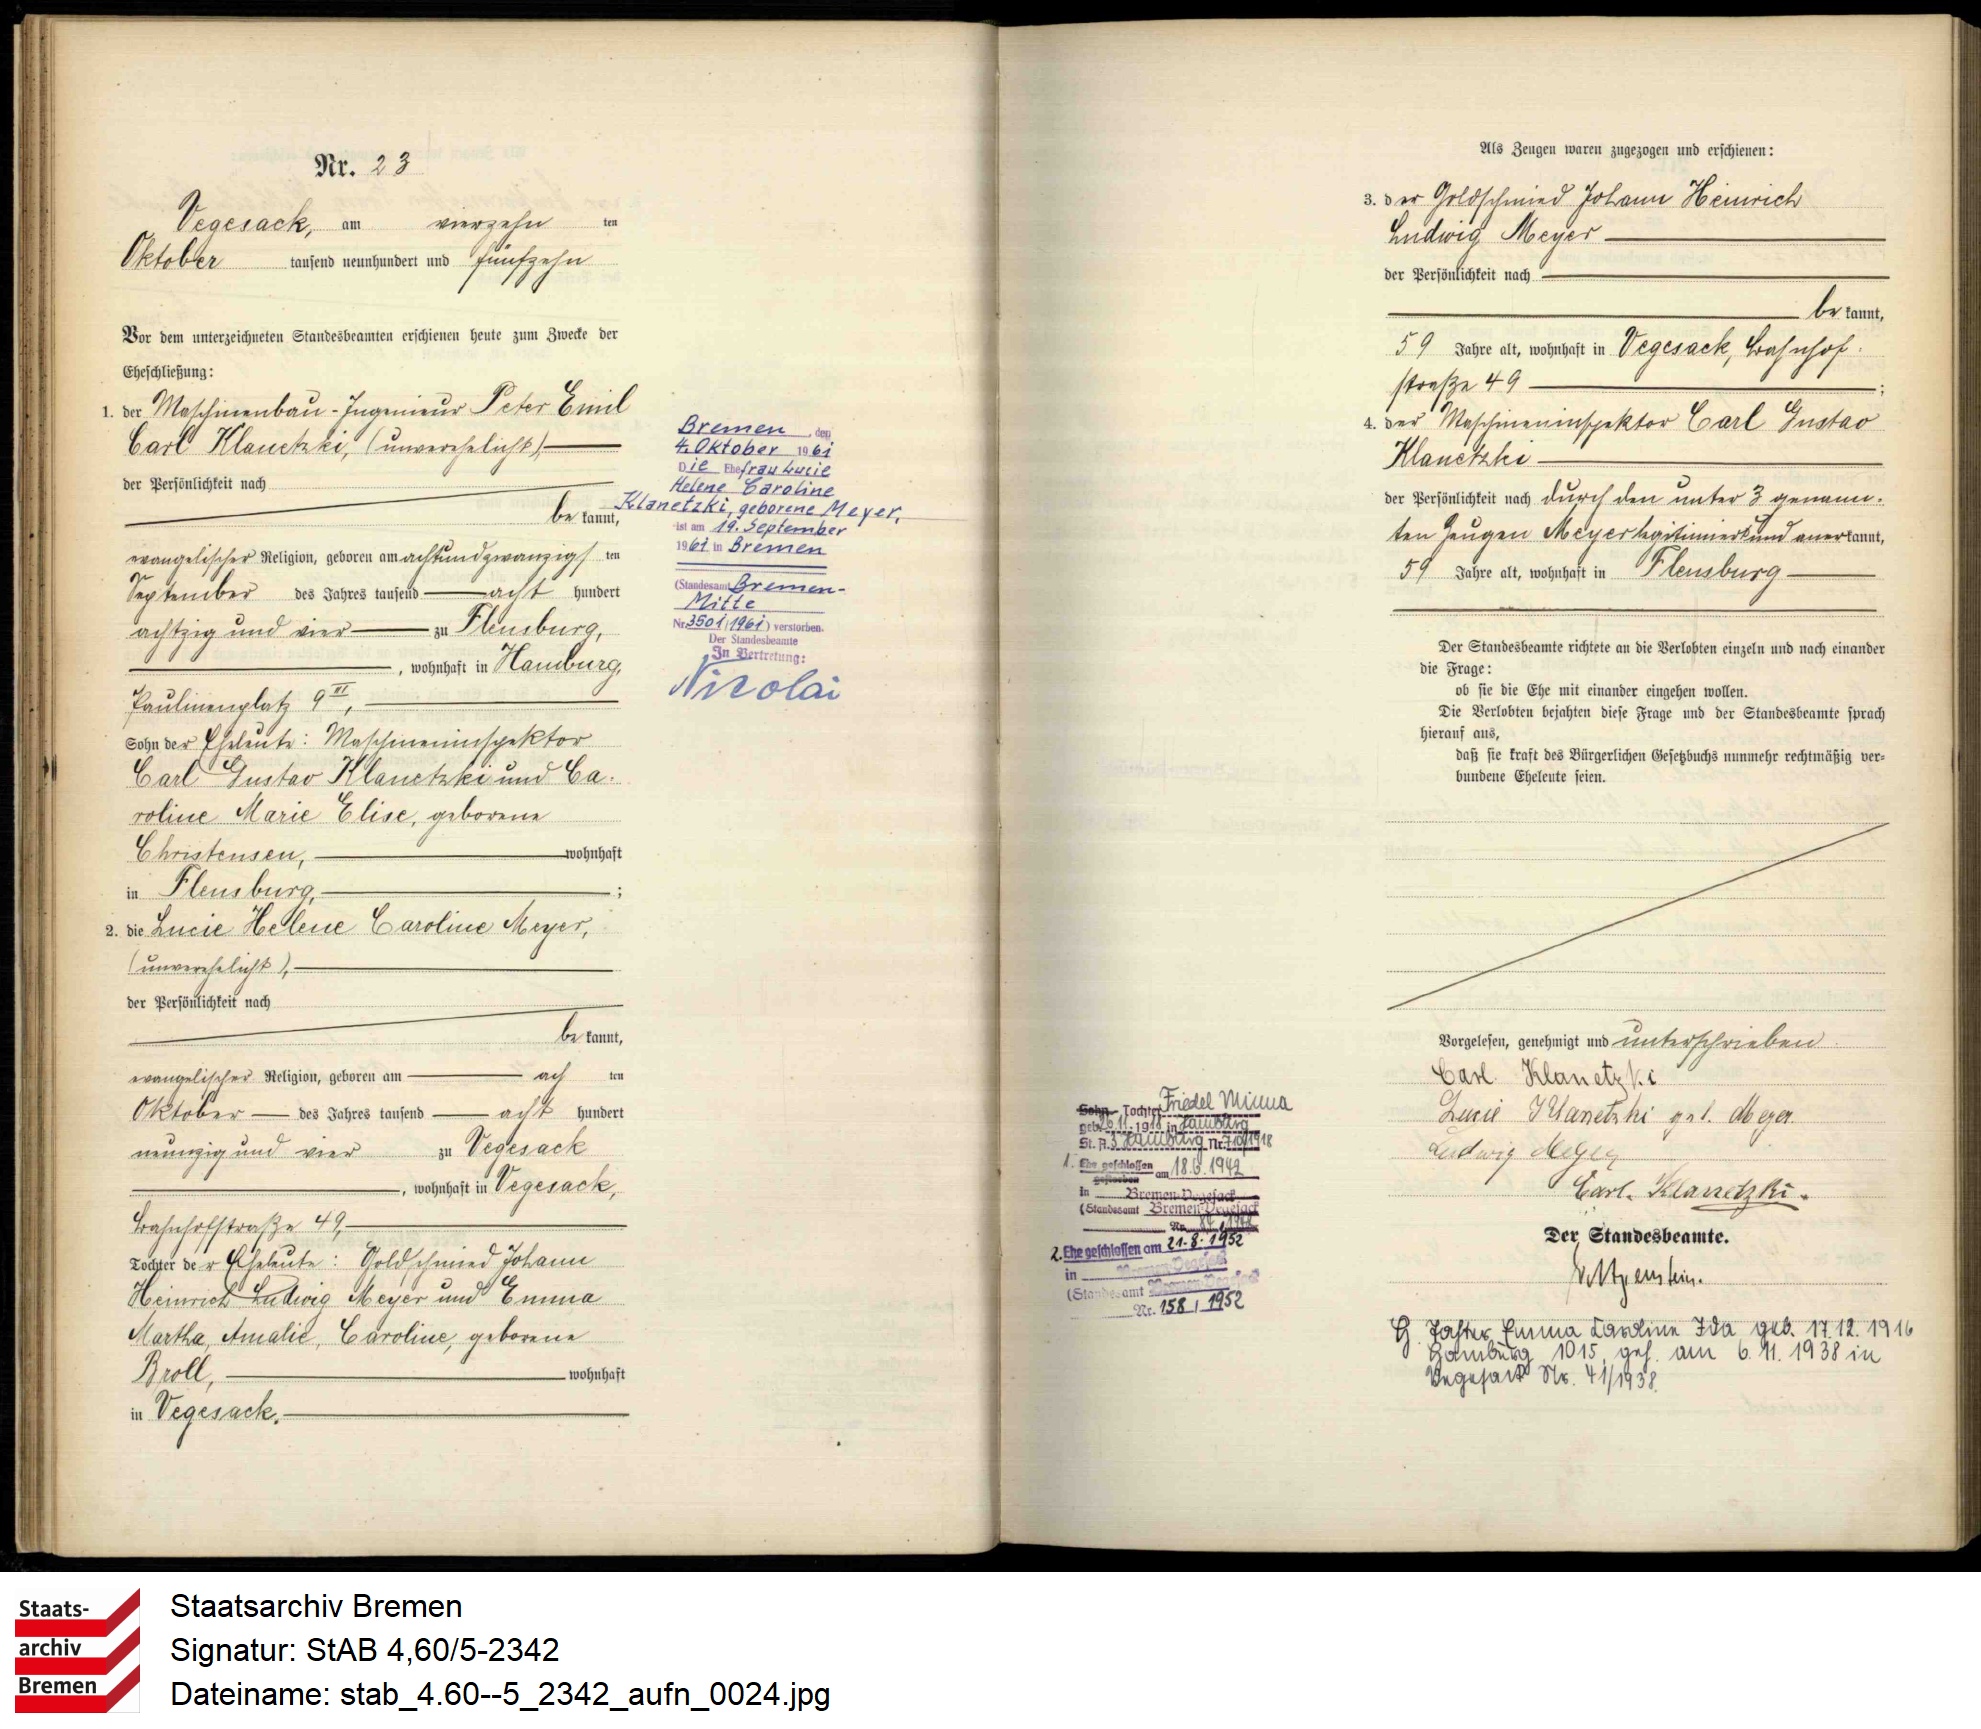 Nr. 23
Vegesack, am vierzehn ten
Oktober tausend neunhundert und fünfzehn
Vor dem unterzeichneten Standesbeamten erschienen heute zum Zwecke der
Eheschließung:
1. der Maschinenbau-Ingenieur Peter Emil
Carl Klanetzki, (unverehelicht),
der Persönlichkeit nach
be kannt,
evangelischer Religion, geboren am achtundzwanzigs ten
September des Jahres tausend acht hundert
achtzig und vier zu Flensburg,
, wohnhaft in Hamburg,
Paulinenplatz 9 II,
Sohn der Eheleute: Maschineninspektor
Carl Gustav Klanetzki und Ca-
roline Marie Elise, geborene
Christensen, wohnhaft
in Flensburg, ;
2. die Lucie Helene Caroline Meyer,
(unverehelicht),
der Persönlichkeit nach
be kannt,
evangelischer Religion, geboren am ach ten
Oktober des Jahres tausend acht hundert
neunzig und vier zu Vegesack
, wohnhaft in Vegesack,
Bahnhofstraße 49,
Tochter der Eheleute: Goldschmied Johann
Heinrich Ludwig Meyer und Emma
Martha, Amalie, Caroline, geborene
Broll, wohnhaft
in Vegesack.
Bremen, den
4. Oktober 1961
Die Ehefrau Lucie
Helene Caroline
Klanetzki, geborene Meyer,
ist am 19. September
1961 in Bremen
(Standesamt Bremen-
Mitte
Nr. 3501/1961) verstorben.
Der Standesbeamte
In Vertretung:
Nicolai
Als Zeugen waren zugezogen und erschienen:
3. der Goldschmied Johann Heinrich
Ludwig Meyer
der Persönlichkeit nach
be kannt,
59 Jahre alt, wohnhaft in Vegesack, Bahnhof-
straße 49 ;
4. der Maschineninspektor Carl Gustav
Klanetzki
der Persönlichkeit nach durch den unter 3 genann-
ten Zeugen Meyer legitimiert und anerkannt,
59 Jahre alt, wohnhaft in Flensburg
Der Standesbeamte richtete an die Verlobten einzeln und nach einander
die Frage:
ob sie die Ehe mit einander eingehen wollen.
Die Verlobten bejahten diese Frage und der Standesbeamte sprach
hierauf aus,
daß sie kraft des Bürgerlichen Gesetzbuchs nunmehr rechtmäßig ver-
bundene Eheleute seien.
Vorgelesen, genehmigt und unterschrieben
Carl Klanetzki
Lucie Klanetzki geb. Meyer.
Ludwig Meyer
Carl Klanetzki.
Der Standesbeamte.
Sohn Tochter Friedel Minna
geb. 26.11.1918 in Hamburg
St. A. 3 Hamburg Nr. 710/1918
1. Ehe geschlossen am 18.6.1942
gestorben
in Bremen-Vegesack
(Standesamt Bremen-Vegesack
Nr. 87/1942
2. Ehe geschlossen am 21.8.1952
in Bremen-Vegesack
(Standesamt Bremen-Vegesack
Nr. 158/1952
Tochter Emma Caroline Ida geb. 17.12.1916
Hamburg 1015, geh. am 6.11.1938 in
Vegesack Nr. 41/1938.
Staats-
archiv
Bremen
Staatsarchiv Bremen
Signatur: StAB 4,60/5-2342
Dateiname: stab_4.60--5_2342_aufn_0024.jpg